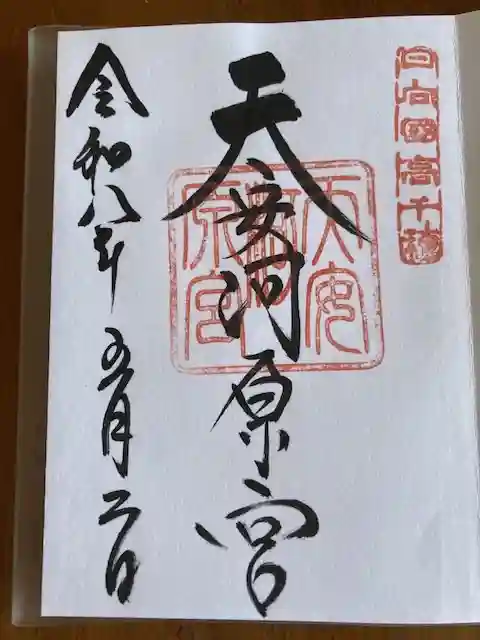 日向國高千穂
天安河原宮
天安河原宮
令和八年五月二日